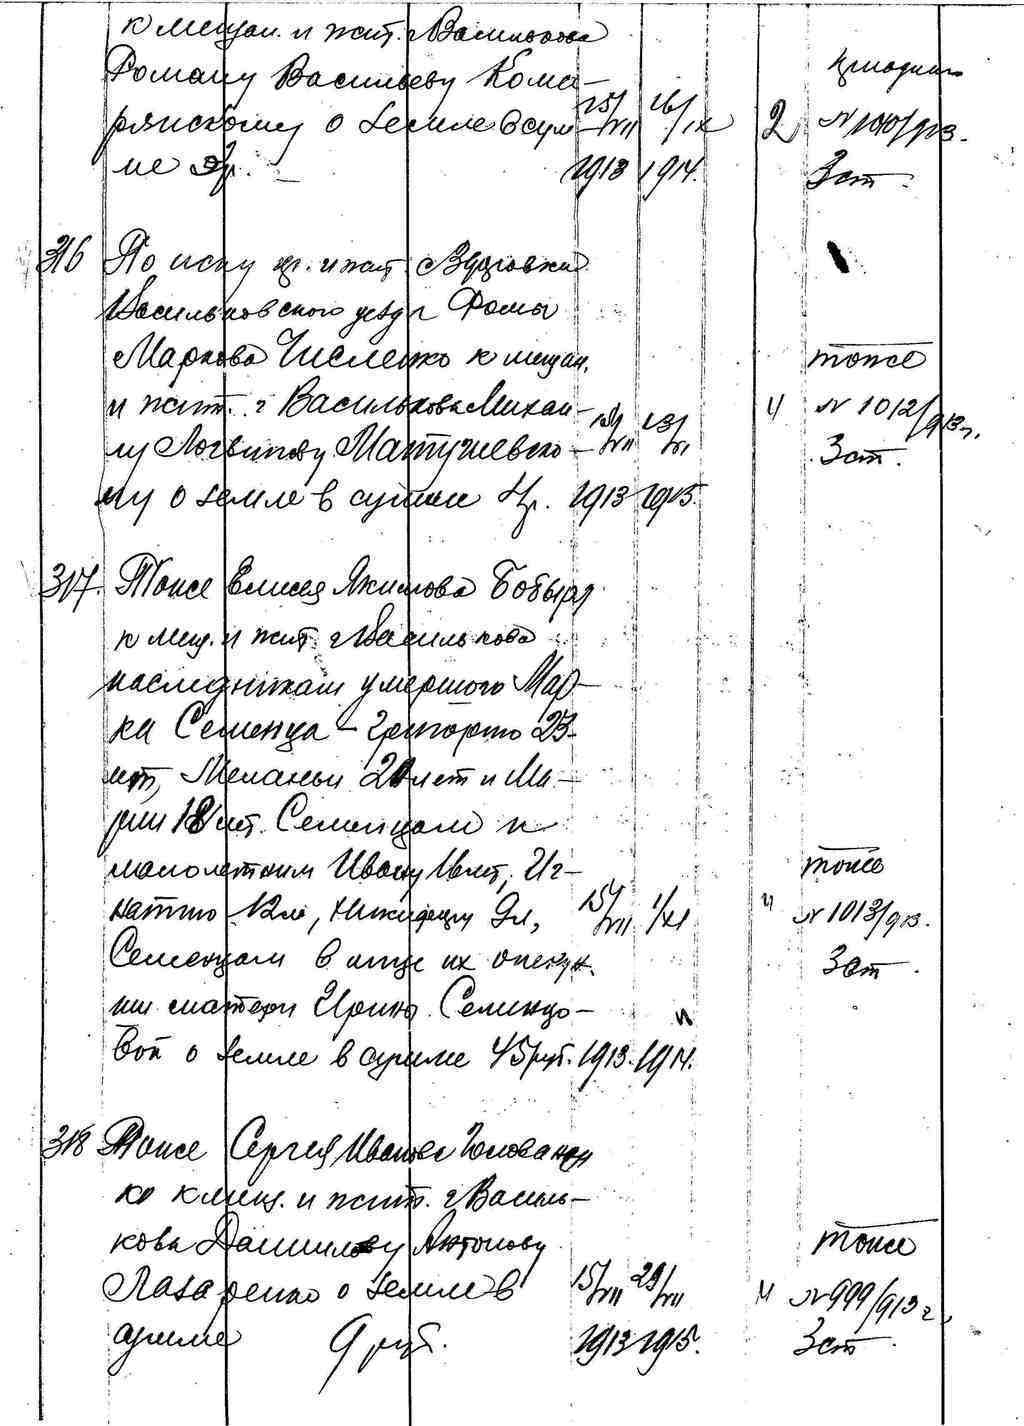 к мещан. и жит. г Василькова
Роману Васильеву Кома-
рянскому о земле в сум- 15/VII 16/IX 2 № 1010/913.
ме р. 1913 1914. 3 ст.
316 По иску кр. и жит.
Васильковского уезда Фомы
Маркова Численко к мещан. тоже
и жит. г Василькова Михаи- 4 № 1012/913 г.
лу Логвинову Матушевско- 15/VII 3 ст.
му о земле в сумме 4 р. 1913 1915.
317. Тоже Елисея Якимова Бобыря
к мещ. и жит г Василькова
наследникам умершого Мар-
ка Семенца - Григорию 23
лет, Меланьи 20 лет и Ма-
рии 18 лет. Семенцам и
малолетним Ивану лет, Иг- тоже
натию 12 л, Никифору 9 л, 15/VII 1/XI № 1013/913.
Семенцам в лице их опекун- 3 ст.
ши матери Ирины Семенцо-
вой о земле в сумме 45 руб. 1913. 1914.
318 Тоже Сергея Иванова Голованен
ко к мещ. и жит. г Василь-
кова Данилову Антонову тоже
Лазаренко о земле в 15/VII 29/VII 4 № 999/913 г.
сумме 9 руб. 1913 1915. 3 ст.